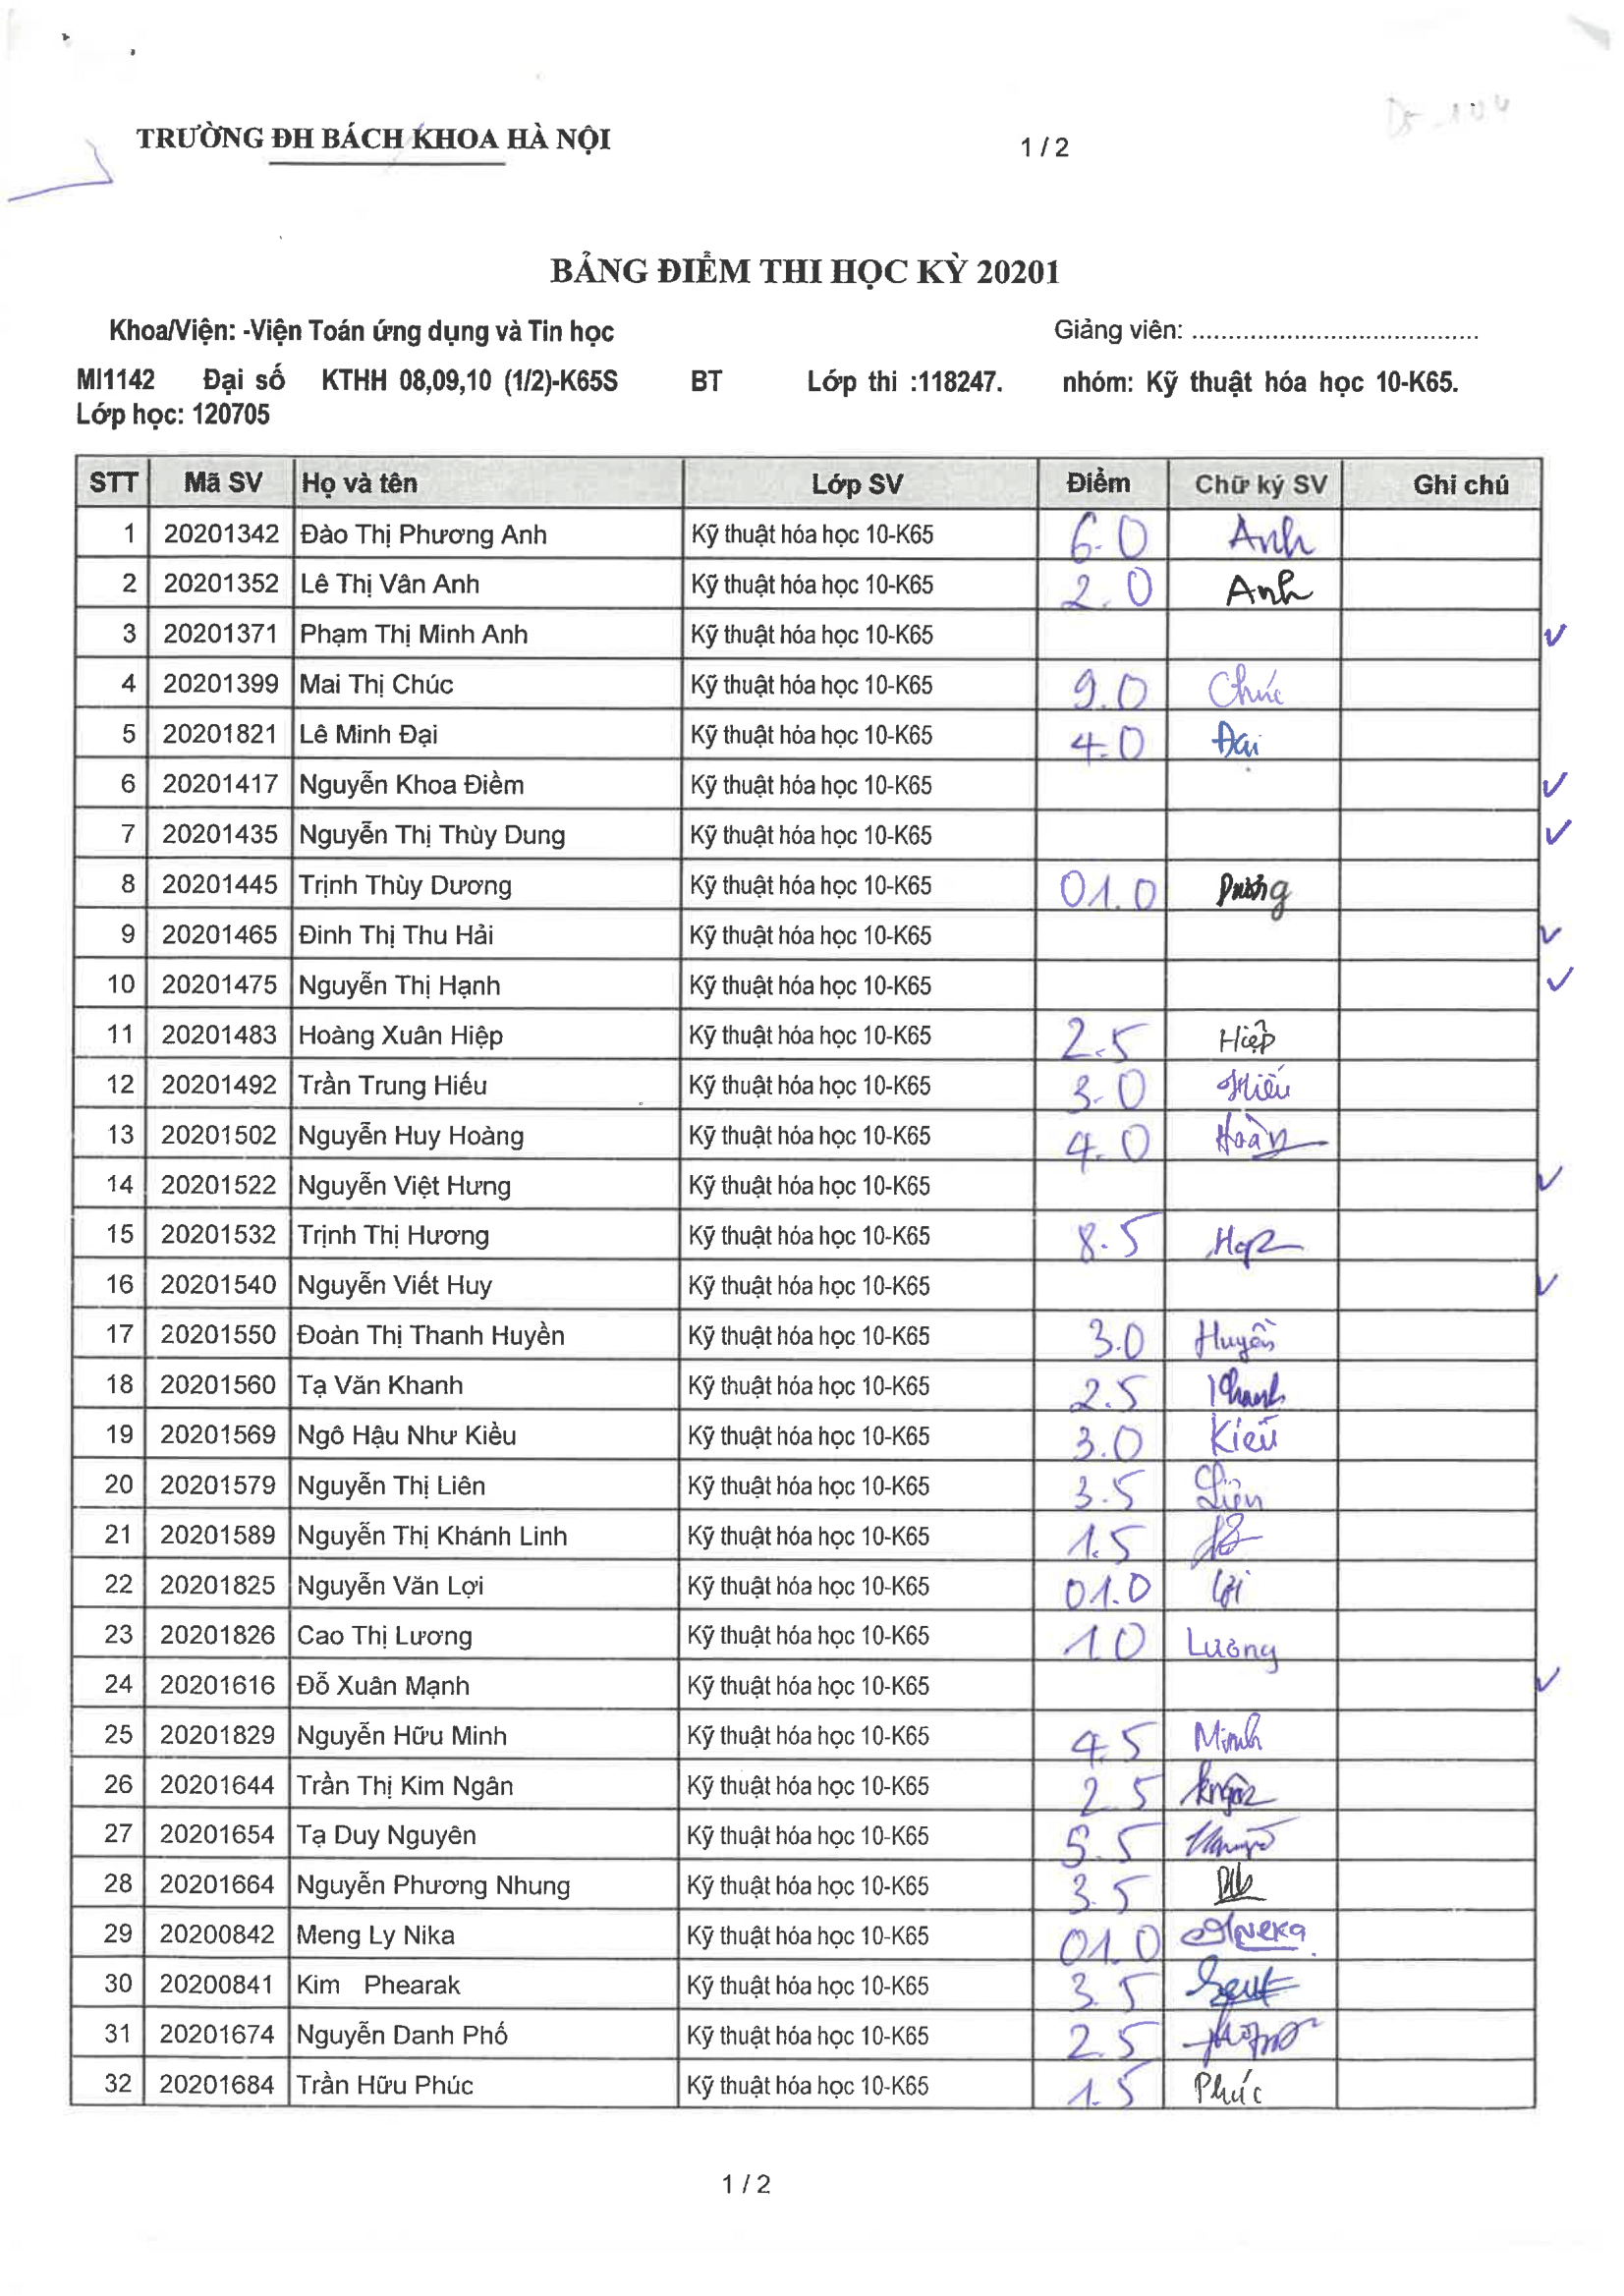 TRƯỜNG ĐH BÁCH KHOA HÀ NỘI 1 / 2
BẢNG ĐIỂM THI HỌC KỲ 20201
Khoa/Viện: -Viện Toán ứng dụng và Tin học Giảng viên: ......................................
MI1142 Đại số KTHH 08,09,10 (1/2)-K65S BT Lớp thi :118247. nhóm: Kỹ thuật hóa học 10-K65.
Lớp học: 120705
STT Mã SV Họ và tên Lớp SV Điểm Chữ ký SV Ghi chú
1 20201342 Đào Thị Phương Anh Kỹ thuật hóa học 10-K65 6.0 Anh
2 20201352 Lê Thị Vân Anh Kỹ thuật hóa học 10-K65 2.0 Anh
3 20201371 Phạm Thị Minh Anh Kỹ thuật hóa học 10-K65
4 20201399 Mai Thị Chúc Kỹ thuật hóa học 10-K65 9.0 Chúc
5 20201821 Lê Minh Đại Kỹ thuật hóa học 10-K65 4.0 Đại
6 20201417 Nguyễn Khoa Điềm Kỹ thuật hóa học 10-K65
7 20201435 Nguyễn Thị Thùy Dung Kỹ thuật hóa học 10-K65
8 20201445 Trịnh Thùy Dương Kỹ thuật hóa học 10-K65 01.0 Dương
9 20201465 Đinh Thị Thu Hải Kỹ thuật hóa học 10-K65
10 20201475 Nguyễn Thị Hạnh Kỹ thuật hóa học 10-K65
11 20201483 Hoàng Xuân Hiệp Kỹ thuật hóa học 10-K65 2.5 Hiệp
12 20201492 Trần Trung Hiếu Kỹ thuật hóa học 10-K65 3.0 Hiếu
13 20201502 Nguyễn Huy Hoàng Kỹ thuật hóa học 10-K65 4.0
14 20201522 Nguyễn Việt Hưng Kỹ thuật hóa học 10-K65
15 20201532 Trịnh Thị Hương Kỹ thuật hóa học 10-K65 8.5
16 20201540 Nguyễn Viết Huy Kỹ thuật hóa học 10-K65
17 20201550 Đoàn Thị Thanh Huyền Kỹ thuật hóa học 10-K65 3.0 Huyền
18 20201560 Tạ Văn Khanh Kỹ thuật hóa học 10-K65 2.5 Khanh
19 20201569 Ngô Hậu Như Kiều Kỹ thuật hóa học 10-K65 3.0 Kiều
20 20201579 Nguyễn Thị Liên Kỹ thuật hóa học 10-K65 3.5 Liên
21 20201589 Nguyễn Thị Khánh Linh Kỹ thuật hóa học 10-K65 1.5
22 20201825 Nguyễn Văn Lợi Kỹ thuật hóa học 10-K65 01.0 Lợi
23 20201826 Cao Thị Lương Kỹ thuật hóa học 10-K65 10 Lương
24 20201616 Đỗ Xuân Mạnh Kỹ thuật hóa học 10-K65
25 20201829 Nguyễn Hữu Minh Kỹ thuật hóa học 10-K65 4.5 Minh
26 20201644 Trần Thị Kim Ngân Kỹ thuật hóa học 10-K65 2.5
27 20201654 Tạ Duy Nguyên Kỹ thuật hóa học 10-K65 5.5
28 20201664 Nguyễn Phương Nhung Kỹ thuật hóa học 10-K65 3.5
29 20200842 Meng Ly Nika Kỹ thuật hóa học 10-K65 01.0
30 20200841 Kim Phearak Kỹ thuật hóa học 10-K65 3.5
31 20201674 Nguyễn Danh Phố Kỹ thuật hóa học 10-K65 2.5
32 20201684 Trần Hữu Phúc Kỹ thuật hóa học 10-K65 1.5 Phúc
1 / 2